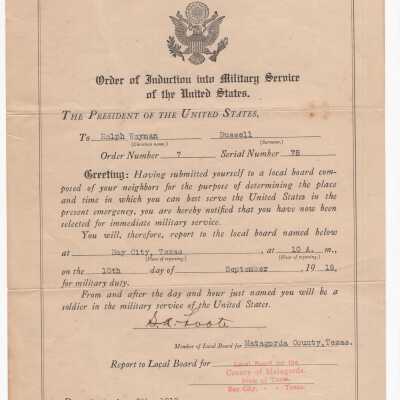 Order of Induction into Military Service
of the United States.
THE PRESIDENT OF THE UNITED STATES,
To Ralph Wayman Russell
(Christian name.) (Surname.)
Order Number 7 Serial Number 78
Greeting: Having submitted yourself to a local board com-
posed of your neighbors for the purpose of determining the place
and time in which you can best serve the United States in the
present emergency, you are hereby notified that you have now been
selected for immediate military service.
You will, therefore, report to the local board named below
at Bay City, Texas, at 10 A. m.,
(Place of reporting.) (Hour of reporting.)
on the 10th day of September, 1918,
for military duty.
From and after the day and hour just named you will be a
soldier in the military service of the United States.
Member of Local Board for Matagorda County, Texas.
Report to Local Board for Local Board for the
County of Matagorda,
State of Texas,
Bay City, - - Texas.